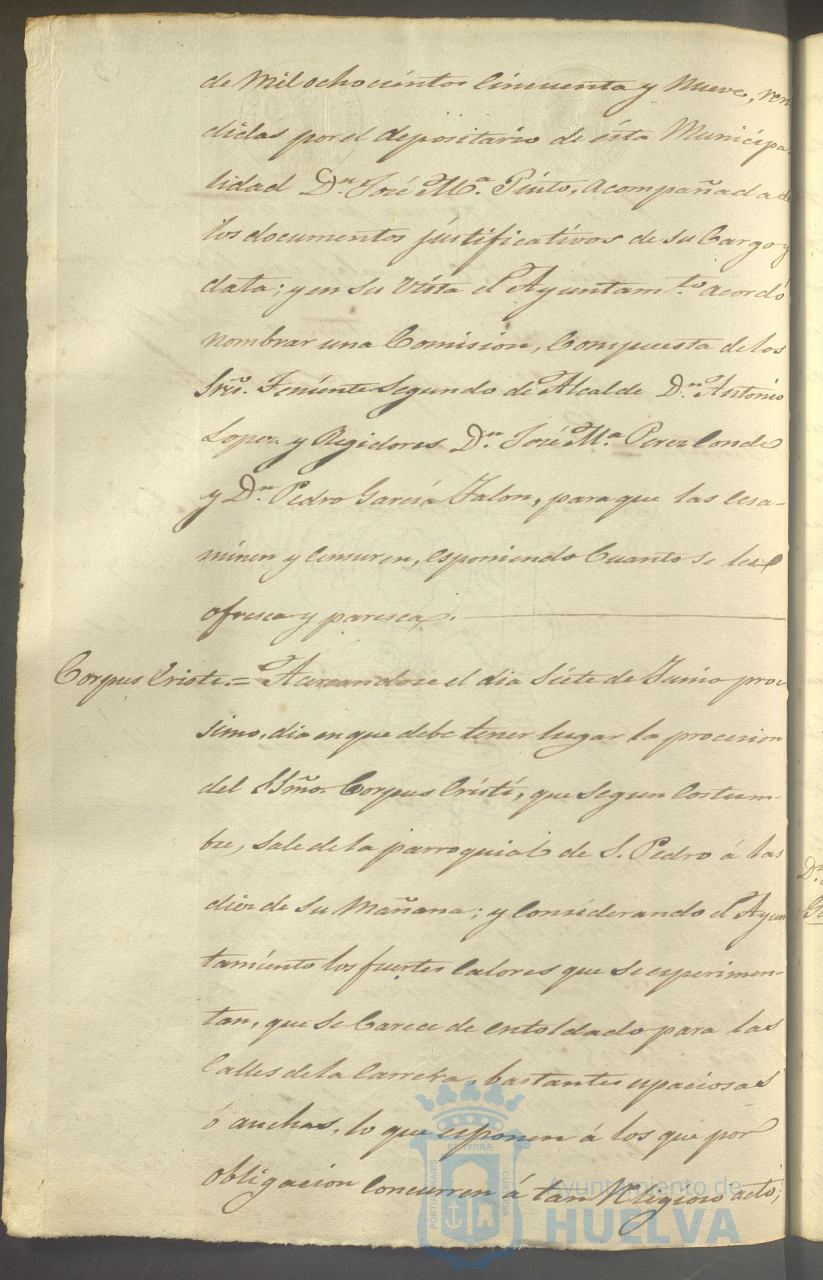 de Mil ochocientos Cincuenta y Nueve, ren
didas por el depositario de ésta Municipa-
lidad Dn. José Ma. Pinto, acompañada de
los documentos justificativos de su Cargo y
data; y en su vista el Ayuntamto. acordó
nombrar una Comision, Compuesta de los
Sres. Teniente Segundo de Alcalde Dn. Antonio
Lopez y Regidores Dn. José Ma. Perez Conde
y Dn. Pedro Garcia Jalon, para que las ecsa-
minen y Censuren, esponiendo Cuanto se les
ofresca y paresca.
Corpus Criste. = Acercandose el dia Siete de Junio proc
simo, dia en que debe tener lugar la procesion
del SSmo. Corpus Cristi, que Segun Costum-
bre, Sale de la parroquial de S. Pedro á las
diez de Su Mañana; y Considerando el Ayun
tamiento los fuertes Calores que Se esperimen-
tan, que Se Carece de entoldado para las
Calles de la Carrera, bastantes espaciosas
ó anchas, lo que esponen á los que por
obligacion Concurren á tan Religioso acto;
Dn.
PORTUS MARIS ET TERRÆ CUSTODIA
Ayuntamiento de
HUELVA